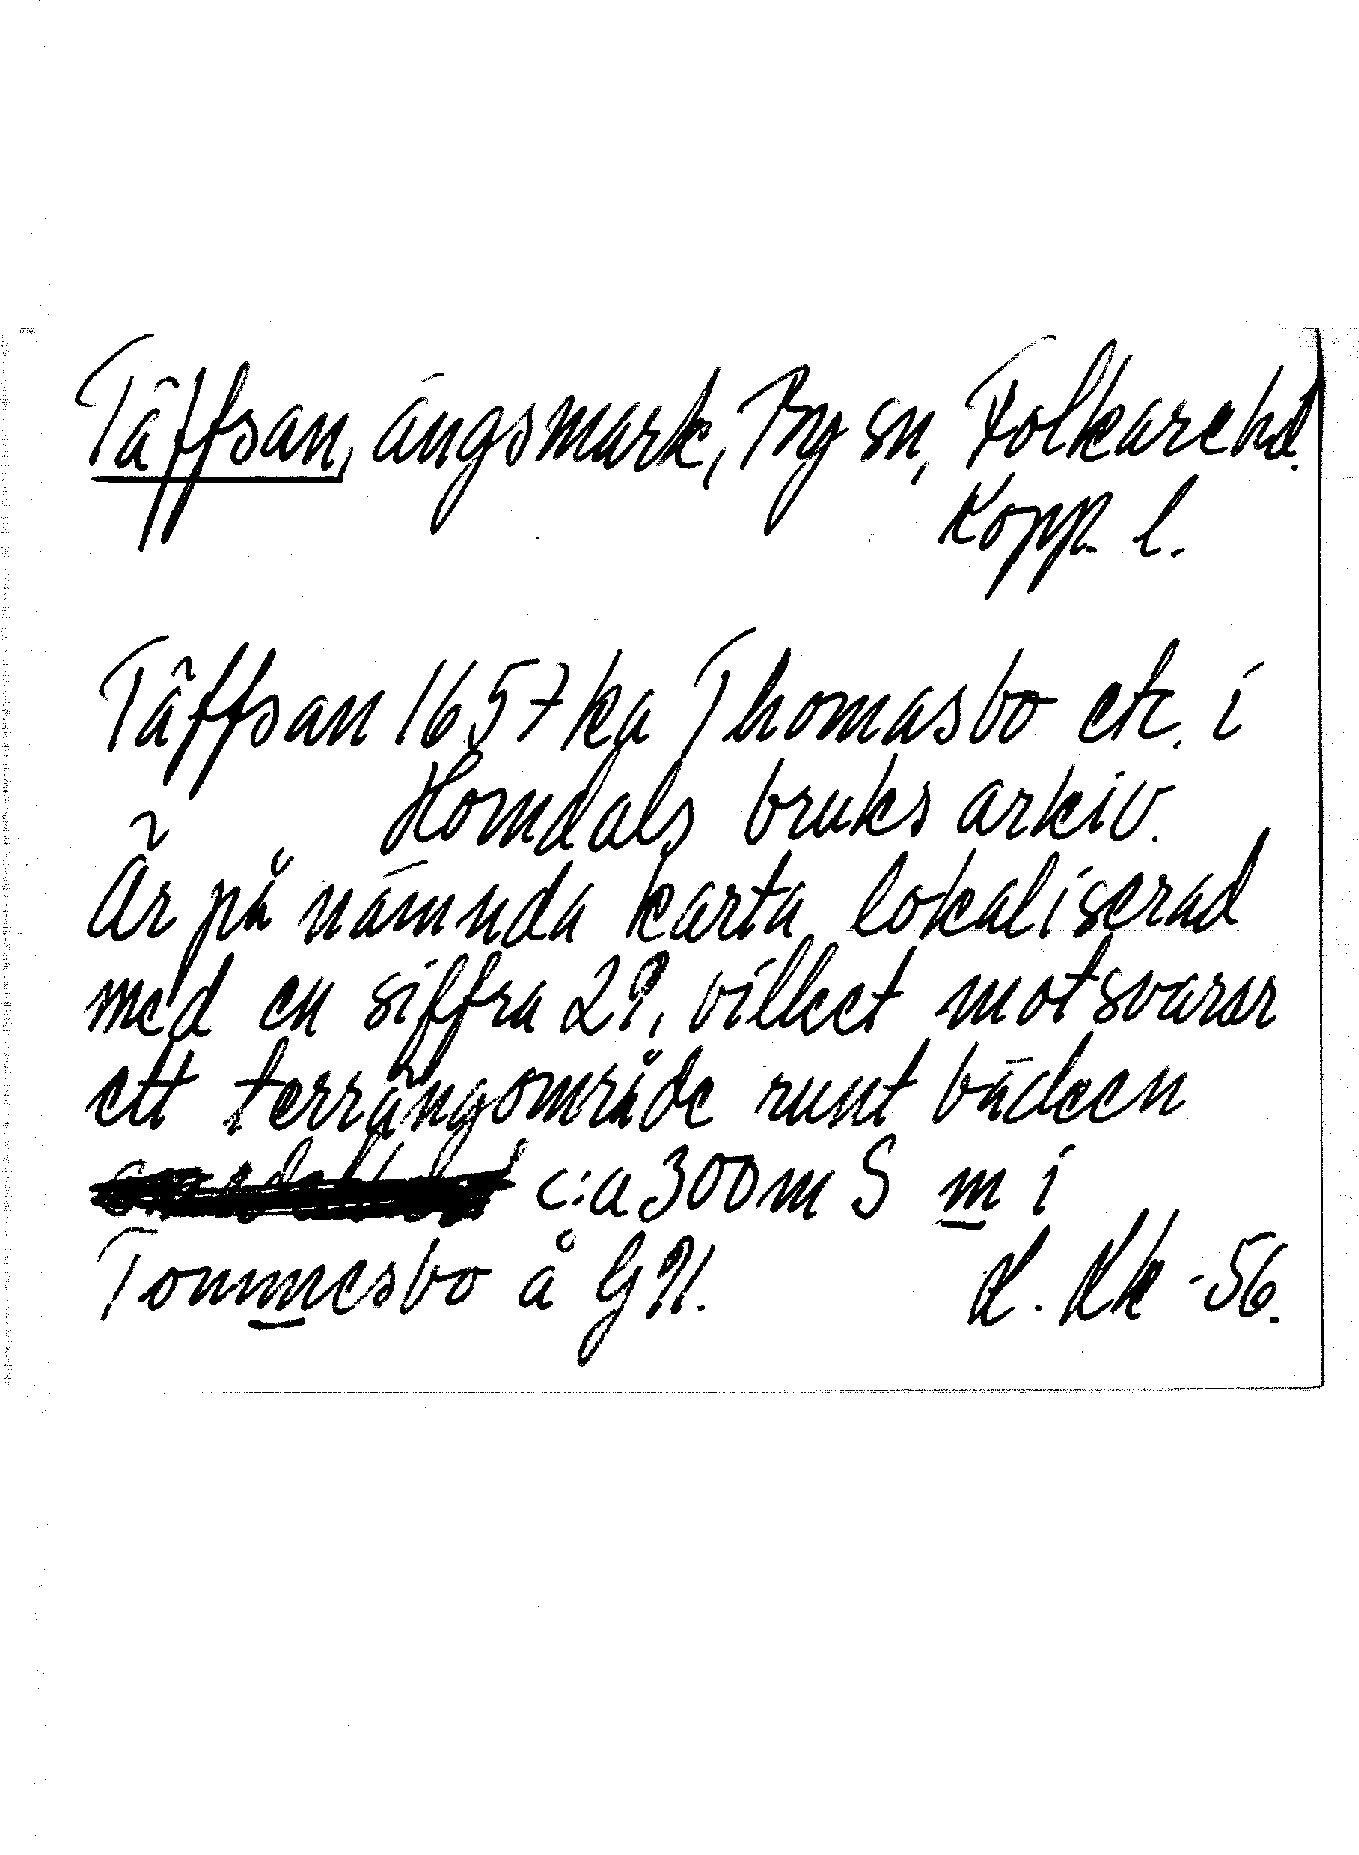 Täffsan, ängsmark, By sn, Folkare hd.
Kopp. l.
Täffsan 1657 ka Thomasbo etc. i
Horndals bruks arkiv.
Är på nämnda karta lokaliserad
med en siffra 29, vilket motsvarar
ett terrängområde runt bäcken
c:a 300 m S m i
Tommesbo å GK.
-56.